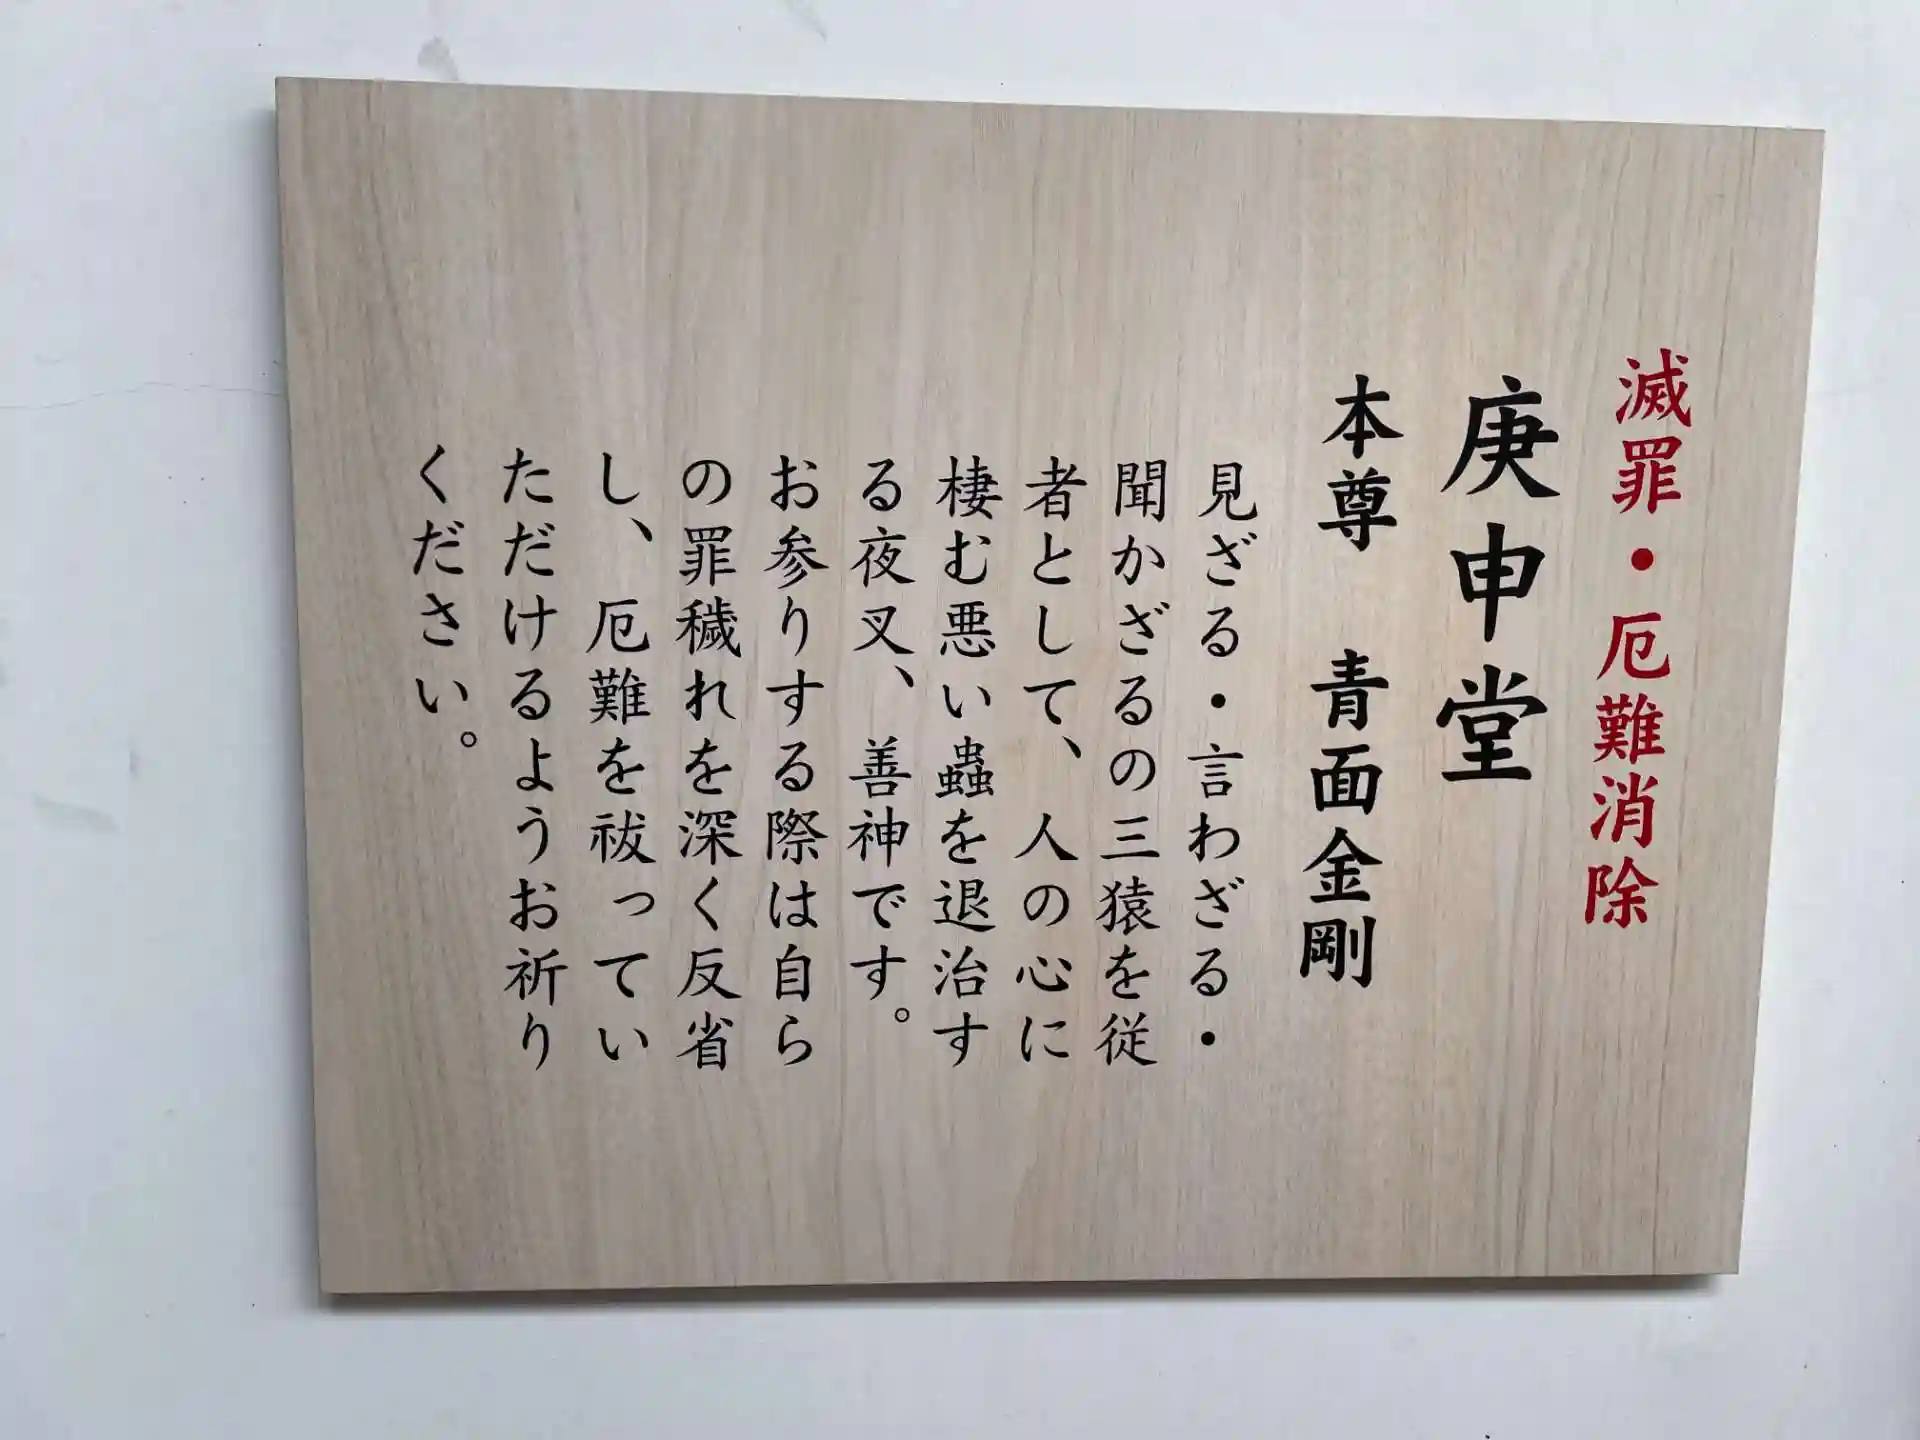 滅罪・厄難消除
庚申堂
本尊　青面金剛
見ざる・言わざる・
聞かざるの三猿を従
者として、人の心に
棲む悪い蟲を退治す
る夜叉、善神です。
お参りする際は自ら
の罪穢れを深く反省
し、厄難を祓ってい
ただけるようお祈り
ください。